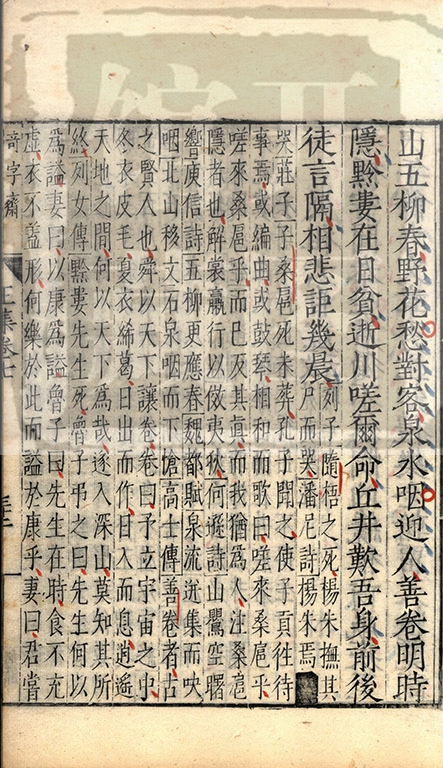 山五柳春野花愁對客泉水咽迎人善卷明時
隱黔婁在日貧逝川嗟爾命丘井歎吾身前後
徒言隔相悲詎幾晨列子隨梧之死楊朱撫其尸而哭潘尼詩楊朱焉
哭莊子子桑扈死未葬孔子聞之使子貢往待
事焉或編曲或鼓琴相和而歌曰嗟來桑扈乎
嗟來桑扈乎而已反其真而我猶為人注桑扈
隱者也解裳臝行以倣夷狄何遜詩山鸎空曙
響庾信詩五柳更應春魏都賦泉流迸集而咉
咽北山移文石泉咽而下愴高士傳善卷者古
之賢人也舜以天下讓卷卷曰予立宇宙之中
冬衣皮毛夏衣絺葛日出而作日入而息逍遙
天地之間何以天下為哉遂入深山莫知其所
終列女傳黔婁先生死曾子弔之曰先生何以
為謚妻曰以康為謚魯子曰先生在時食不充
虛衣不蓋形何樂於此而謚於康乎妻曰君嘗
奇字齋
王集卷七